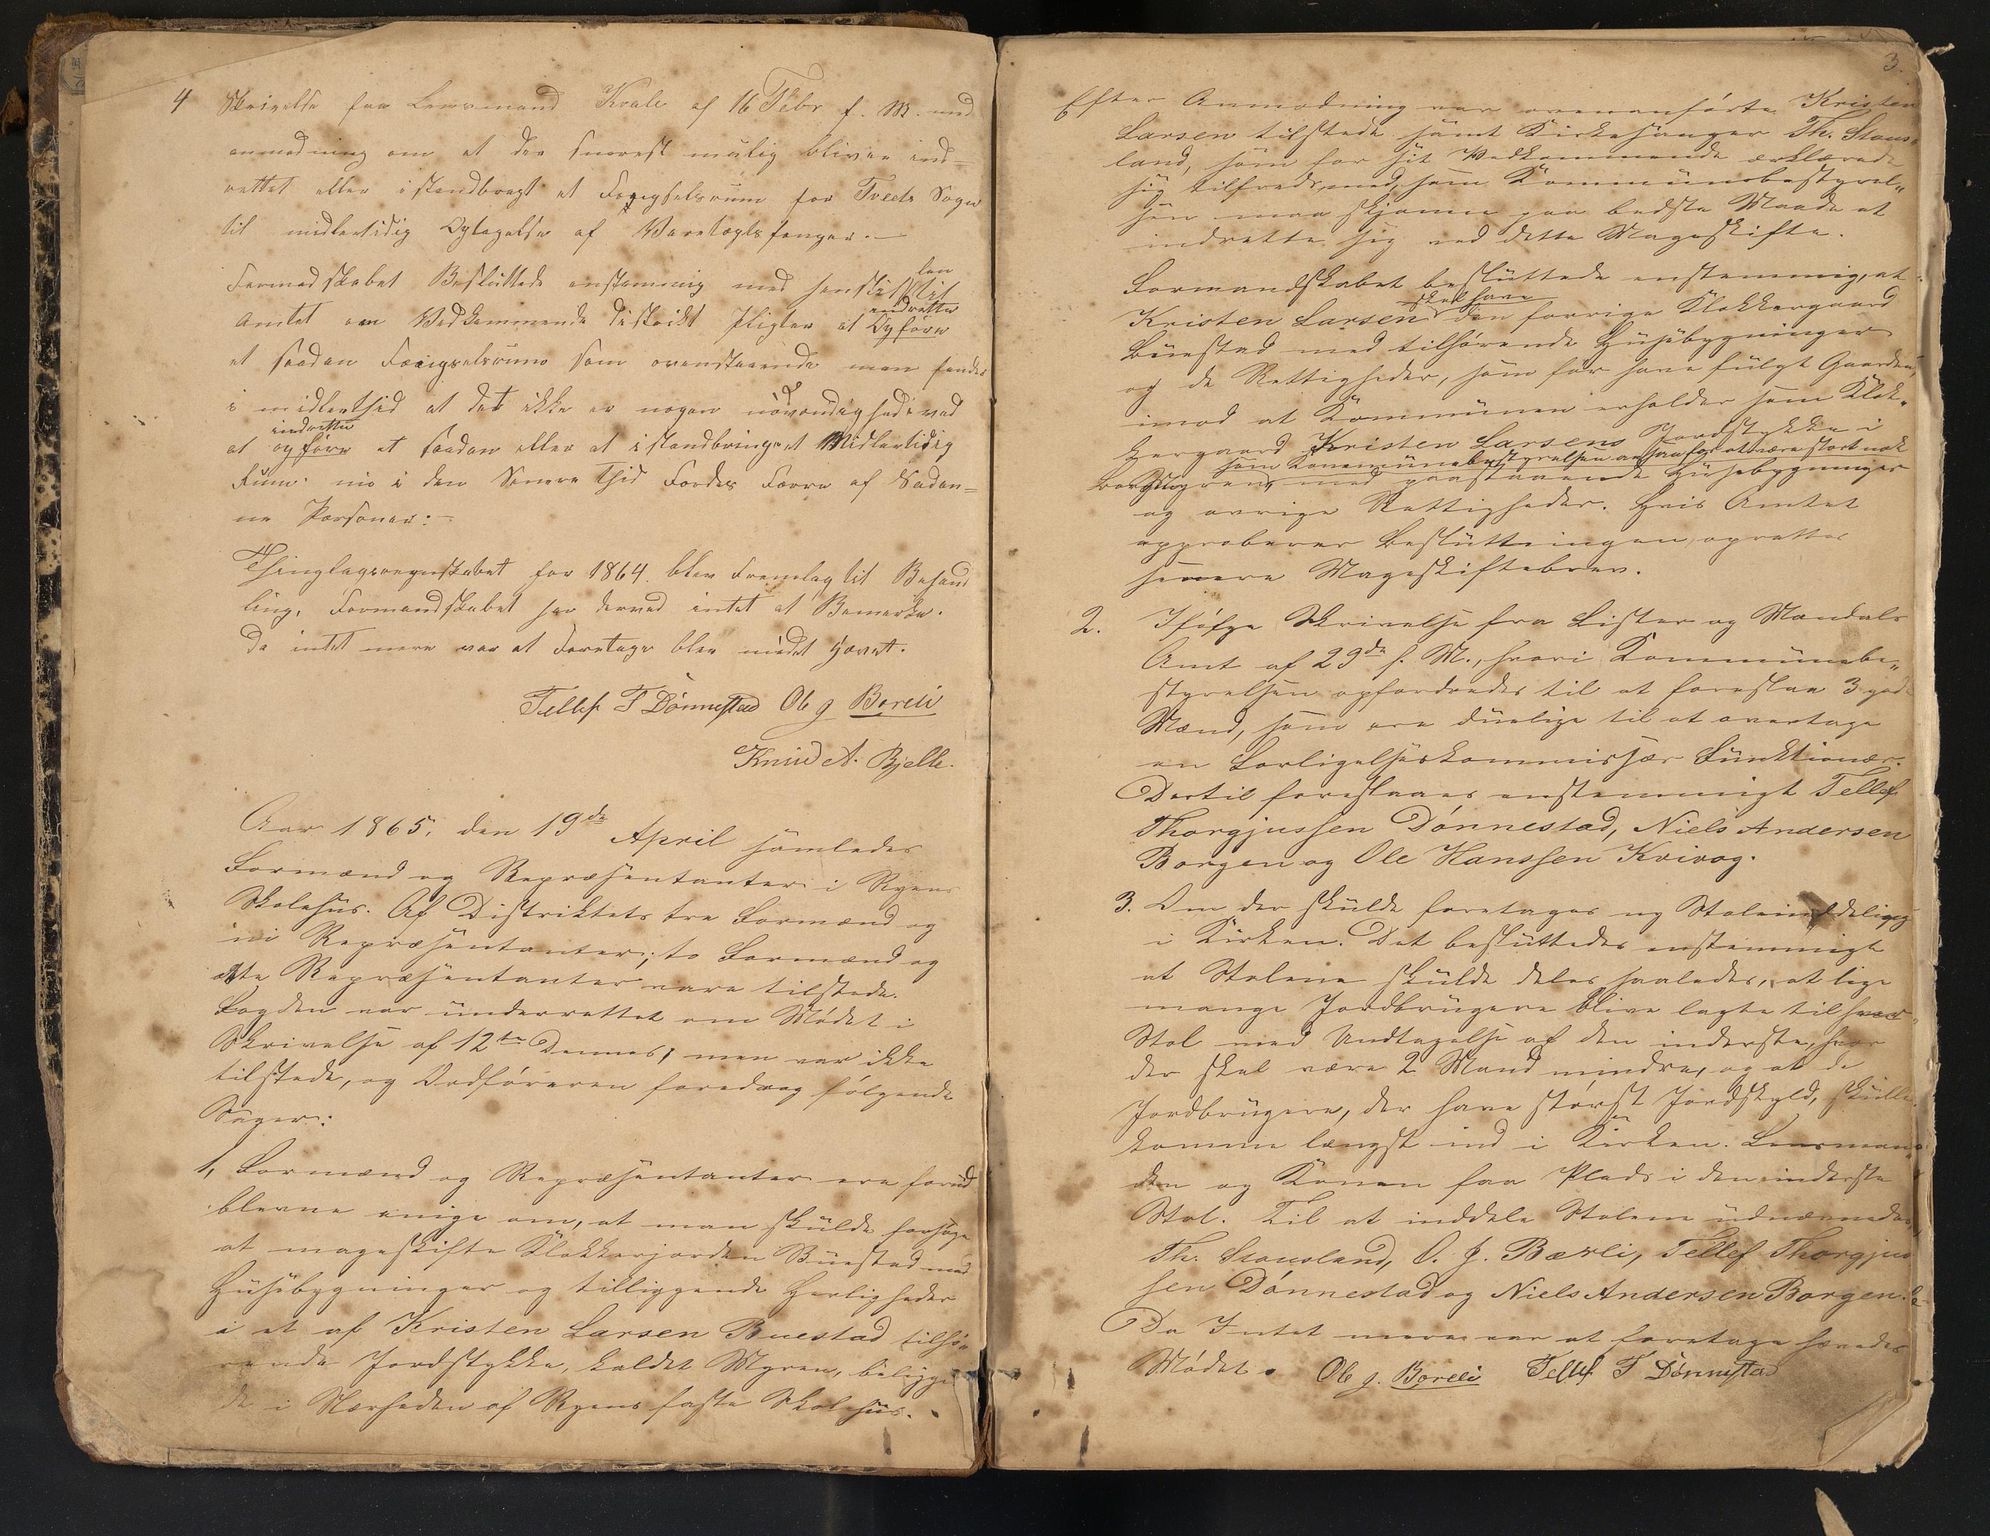 4 Skrivelse fra Lensmand Kvale af 16 Febr f. M. med
anmodning om at der snarest mulig bliver ind-
rettet eller istandbragt et Fængselsrum for Tveits Sogn
til midlertidig Optagelse af Varetægtsfanger.—
Formandskabet Besluttede enstemmig med henstillen til
Amtet om Vedkommende Distrikt Pligter at indrette Opføre
et saadan Fængselsrum som ovenstaaende man finder
i midlertid at det ikke er nogen nødvendighed ved
at indrette opføre et saadan eller at istandbringe et Midlertidig
Rum. nu i den Senere tid Fordes Færre af Sadan-
ne Personer:—
Thinglagsregnskabet for 1864. blev Fremlag til Behand
ling, Formandskabet har derved intet at Bemerke.
Da intet mere var at Foretage blev mødet hævet.
Tellef T Dønnestad Ole J Bæreli
Knud A. Bjelle.
Aar 1865, den 19de April samledes
Formænd og Repræsentanter i Ryens
Skolehus. Af Distriktets tre Formænd og
ni Repræsentanter, to Formænd og
otte Repræsentanter vare tilstede.
Fogden var underrettet om Mødet i
Skrivelse af 12te Dennes, men var ikke
tilstede, og Ordføreren foredrog følgende
Sager:
1, Formænd og Repræsentanter ere forud
blevne enige om, at man skulde forsøge
at mageskifte Klokkerjorden Buestad med
Husebygninger og tilliggende Herligheder
i et af Kristen Larsen Buestad tilhø-
rende Jordstykke, kaldet Myren, beliggen
de i Nærheden af Ryens faste Skolehus.
3.
Efter Anmodning var ovenanførte Kristen
Larsen tilstede samt Kirkesanger Th. Stous-
land, som for sit Vedkommende erklærede
sig tilfreds med, som Kommunebestyrel-
sen maa skjønne paa bedste Maade at
indrette sig ved dette Mageskifte.
Formandskabet besluttede enstemmig, at
Kristen Larsen skal have den forrige Klokkergaard
Buestad med tilhørende Husebygninger
og de Rettigheder, som før have fulgt Gaarden,
imod at Kommunen erholder som Klok-
kergaard Kristen Larsens Jordstykke i
som Kommunebestyrelsen anseer for at være stort nok
Myren, med paastaaende Husebygninger
og øvrige Rettigheder. Hvis Amtet
approberer Beslutningen, oprettes
senere Mageskiftebrev.
2. Ifølge Skrivelse fra Lister og Mandals
Amt af 29de f. M., hvori Kommunebe-
styrelsen opfordredes til at foreslaa 3 gode
Mænd, som ere duelige til at overtage
en Forligelseskommissær Funktioner.
Dertil foreslaaes enstemmigt Tellef
Thorgjussen Dønnestad, Niels Andersen
Borgen og Ole Hanssen Kvivog.
3. Om der skulde foretages ny Stoleinddeling
i Kirken. Det besluttedes enstemmigt
at Stolene skulde deles saaledes, at lige
mange Jordbrugere blive lagte til hver
Stol med Undtagelse af den inderste, hvor
der skal være 2 Mand mindre, og at de
Jordbrugere, der have størst Jordskyld, skulle
komme længst ind i Kirken. Lensman-
den og Konen faa Plads i den inderste
Stol. Til at inddele Stolene udnævnedes
Th. Stousland, O. J. Bærli, Tellef Thorgjus
sen Dønnestad og Niels Andersen Borgen.
Da Intet mere var at foretage hævedes
Mødet. Ole J. Bæreli Tellef T Dønnestad